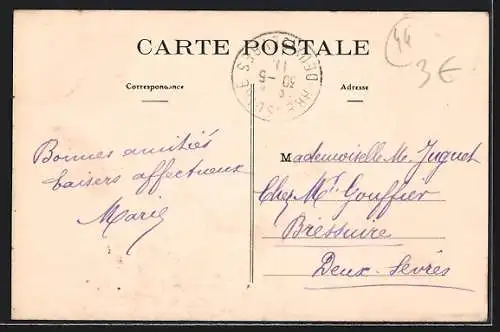 CARTE POSTALE
Correspondance
Adresse
44
3€
DEUX-SEVRES
30 - 5
11
Bonnes amitiés
baisers affectueux
Marie
Mademoiselle M. Juguet
Chez Mr. Gouffier
Bressuire
Deux-Sèvres